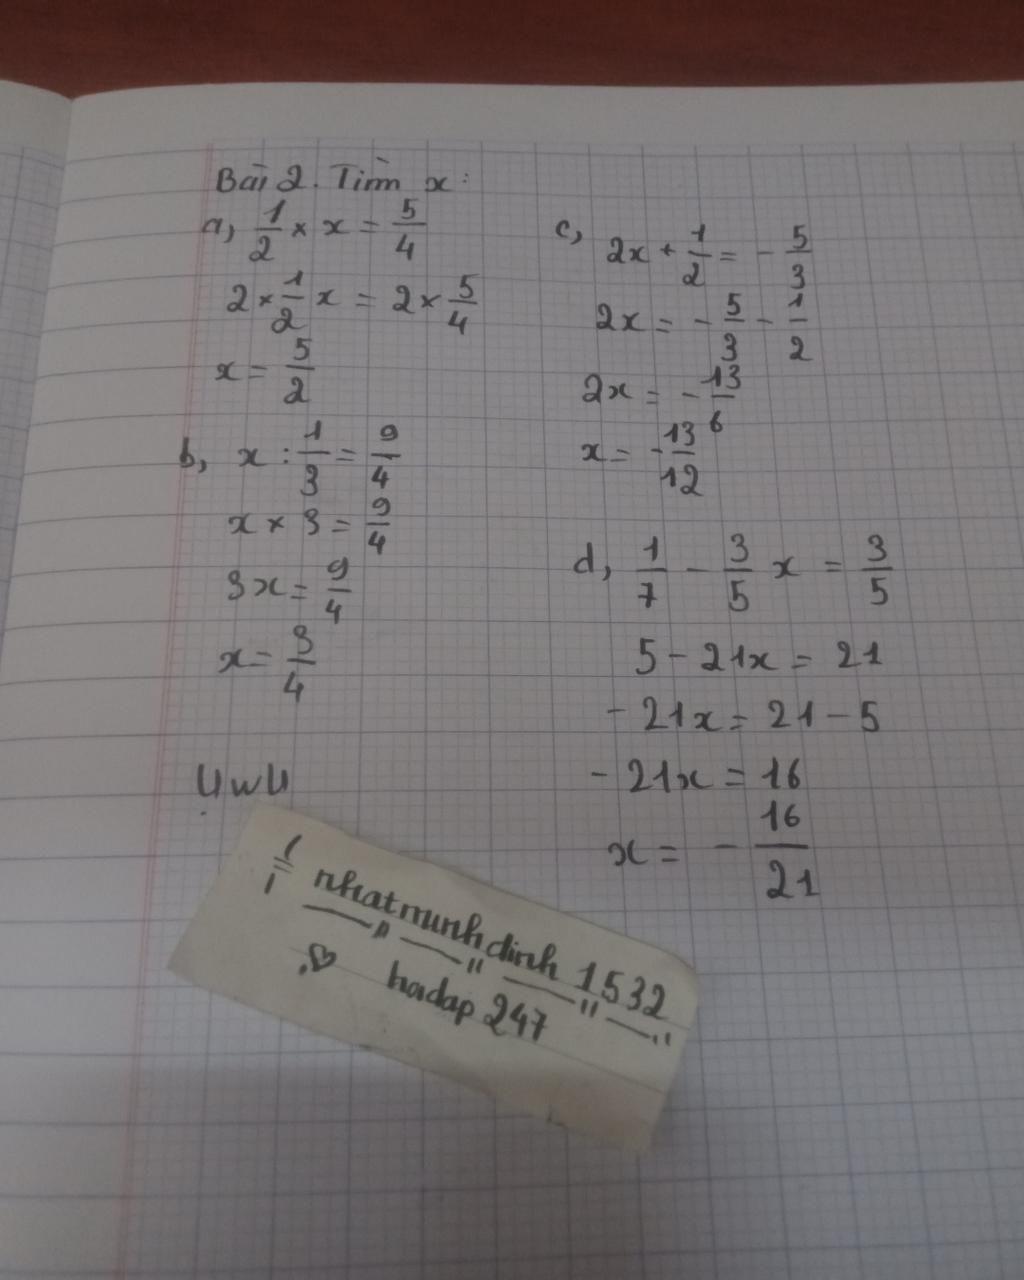 Bài 2. Tìm x:
a, 1/2 × x = 5/4
2 × 1/2 x = 2 × 5/4
x = 5/2
b, x : 1/3 = 9/4
x × 3 = 9/4
3x = 9/4
x = 3/4
UwU
c, 2x + 1/2 = - 5/3
2x = - 5/3 - 1/2
2x = - 13/6
x = - 13/12
d, 1/7 - 3/5 x = 3/5
5 - 21x = 21
- 21x = 21 - 5
- 21x = 16
x = - 16/21
nhatminhdinh1532
hoidap247